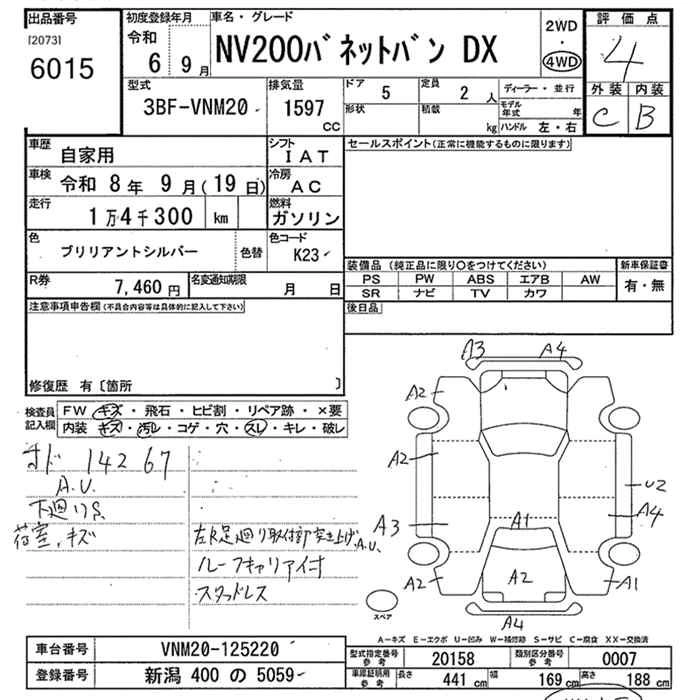 出品番号
[2073]
6015
初度登録年月
令和
6 9 月
車名・グレード
NV200バネットバン DX
2WD
・
4WD
評価点
4
外装 内装
C B
型式
3BF-VNM20
排気量
1597
CC
ドア
5
形状
定員
2 人
積載
kg
ディーラー・並行
モデル年式 年
ハンドル 左・右
車歴
自家用
シフト
IAT
車検
令和 8 年 9 月(19 日)
冷房
AC
走行
1万4千300 km
燃料
ガソリン
色
ブリリアントシルバー
色替
色コード
K23
R券
7,460 円
名変通知期限
月 日
セールスポイント(正常に機能するものに限ります)
装備品 (純正品に限り〇をつけてください)
PS PW ABS エアB AW
SR ナビ TV カワ
新車保証書
有・無
後日品
注意事項申告欄(不具合内容等は具体的に記入して下さい)
修復歴 有〔箇所 〕
検査員
記入欄
FW キズ・飛石・ヒビ割・リペア跡・×要
内装 キズ・汚レ・コゲ・穴・スレ・キレ・破レ
オド 14267
A.U.
下廻りS
荷室、キズ
左R足廻り取付部突き上げ、A.U.
ルーフキャリア付
スタッドレス
A3 A4
A2
A2
U2
A3 A1 A4
A2 A2 A1
A4
スペア
A−キズ E−エクボ U−凹み W−補修跡 S−サビ C−腐食 XX−交換済
車台番号
VNM20-125220
登録番号
新潟 400 の 5059
型式指定番号
参考
20158
類別区分番号
参考
0007
車庫証明用
参考
長さ
441 cm
幅
169 cm
高さ
188 cm